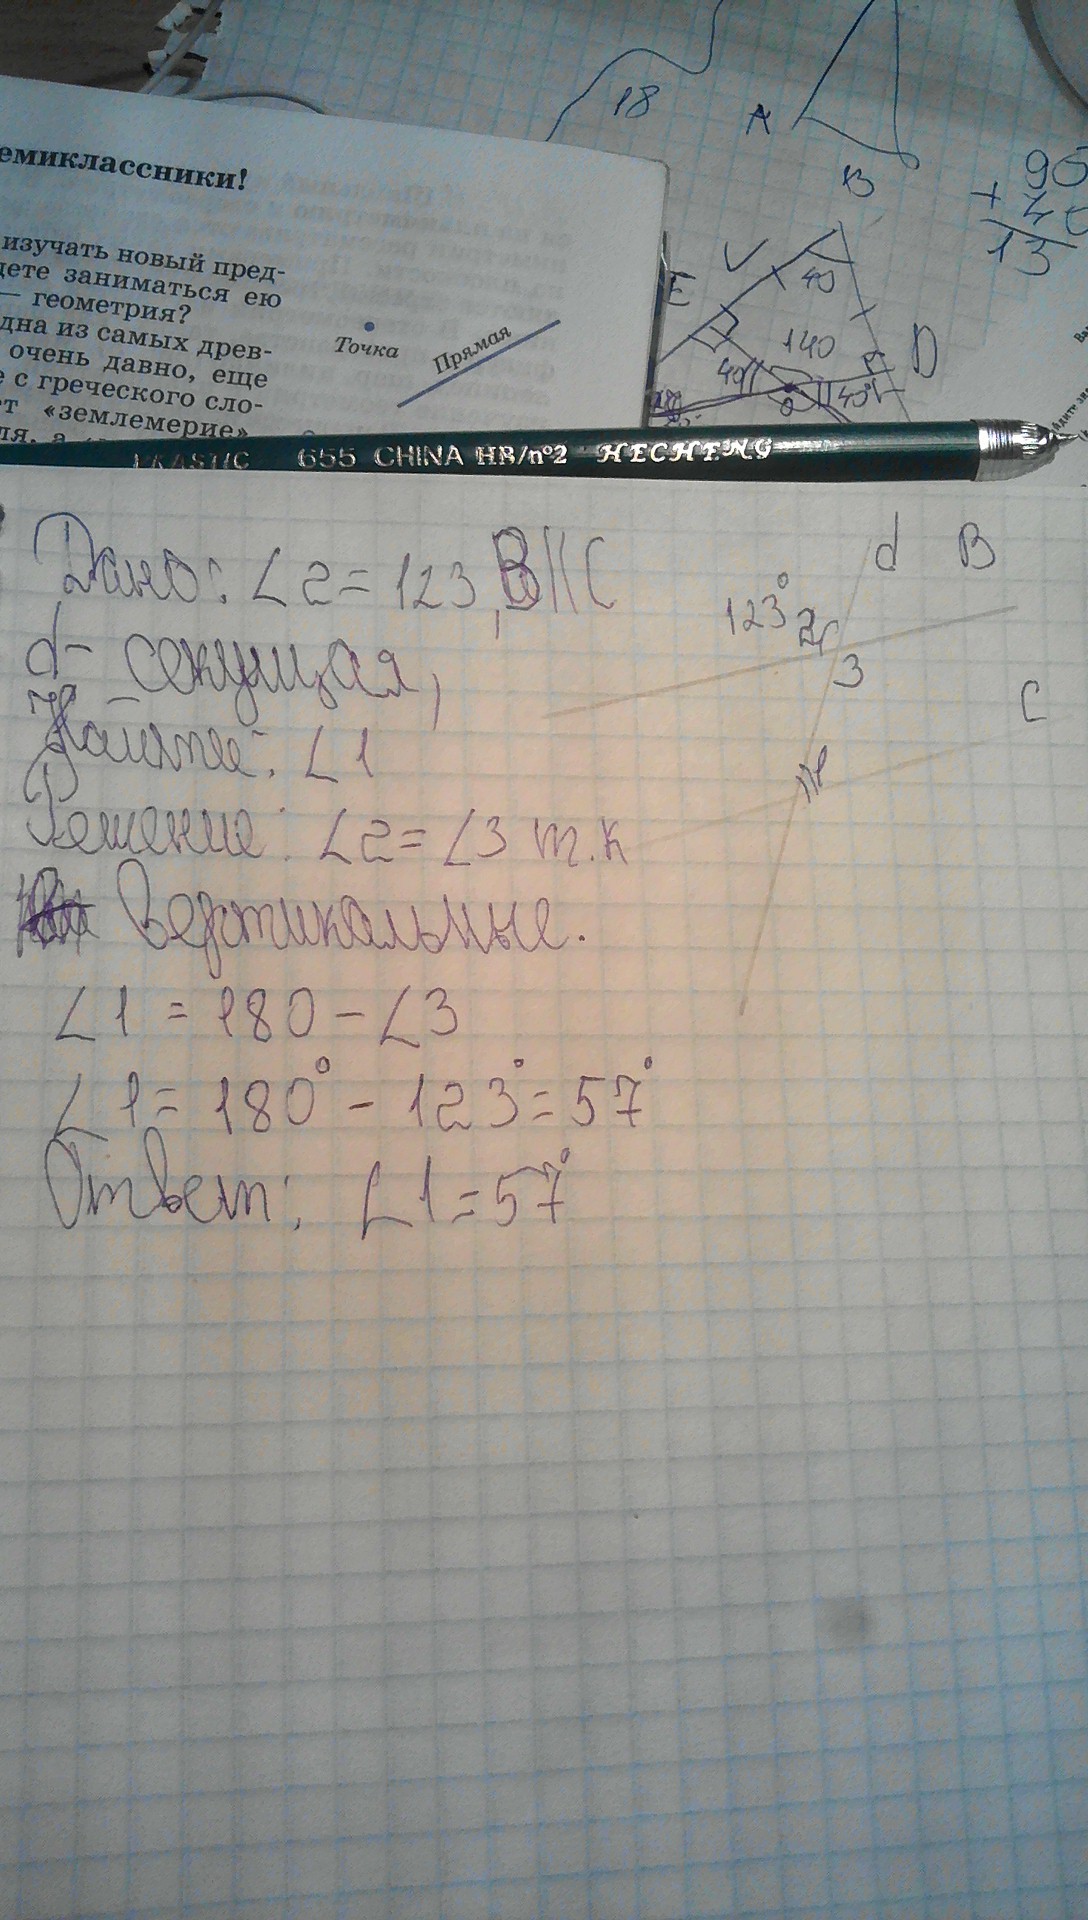 18
A
B
+
13
емиклассники!
изучать новый пред-
дете заниматься ею
— геометрия?
дна из самых древ-
очень давно, еще
е с греческого сло-
ет «землемерие»
Точка
Прямая
E
V
40
140
40
40°
D
655 CHINA HB/nº2 HECHENG
Дано: ∠2 = 123, B||C
d - секущая,
Найти: ∠1
Решение: ∠2 = ∠3 т.к
Вертикальные.
∠1 = 180 - ∠3
∠1 = 180° - 123° = 57°
Ответ: ∠1 = 57°
d B
123° 2
3
C